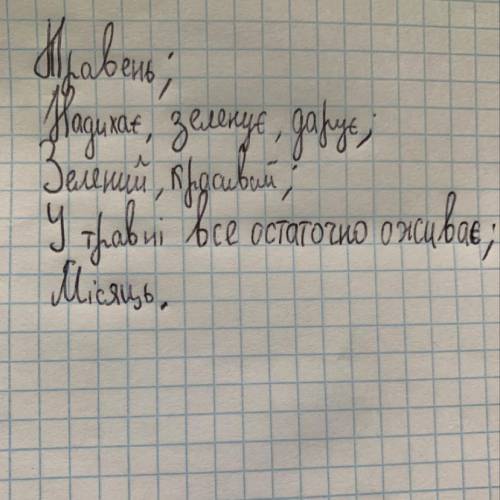 Травень;
Надихає, зеленує, дарує;
Зелений, красивий;
У травні все остаточно оживає;
Місяць.